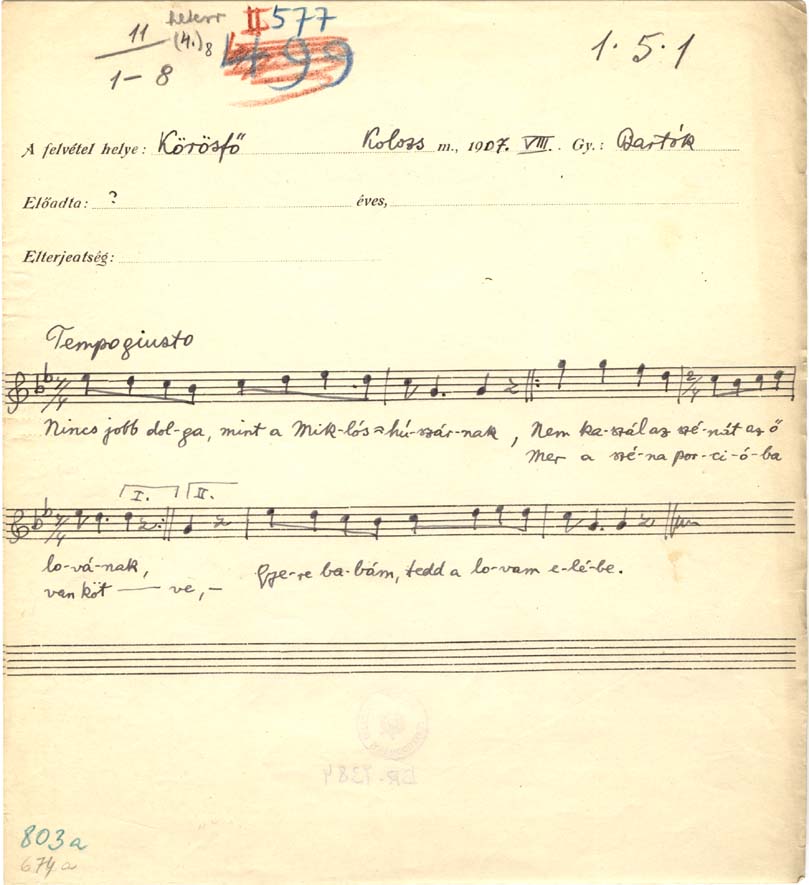 11
1 – 8
heterr
(4.) 8
II 577
499
1. 5. 1
A felvétel helye: Körösfő Kolozs m., 1907. VIII. Gy.: Bartók
Előadta: ? éves,
Elterjeatség:
Tempo giusto
4/4 2/4
Nincs jobb dol-ga, mint a Mik-lós-hú-szár-nak, Nem ka-szál az szé-nát az ő
Mer a szé-na por-ci-ó-ba
4/4 I. II.
lo-vá-nak, Gye-re ba-bám, tedd a lo-vam e-lé-be.
van köt — ve, –
BR-
803a
674a